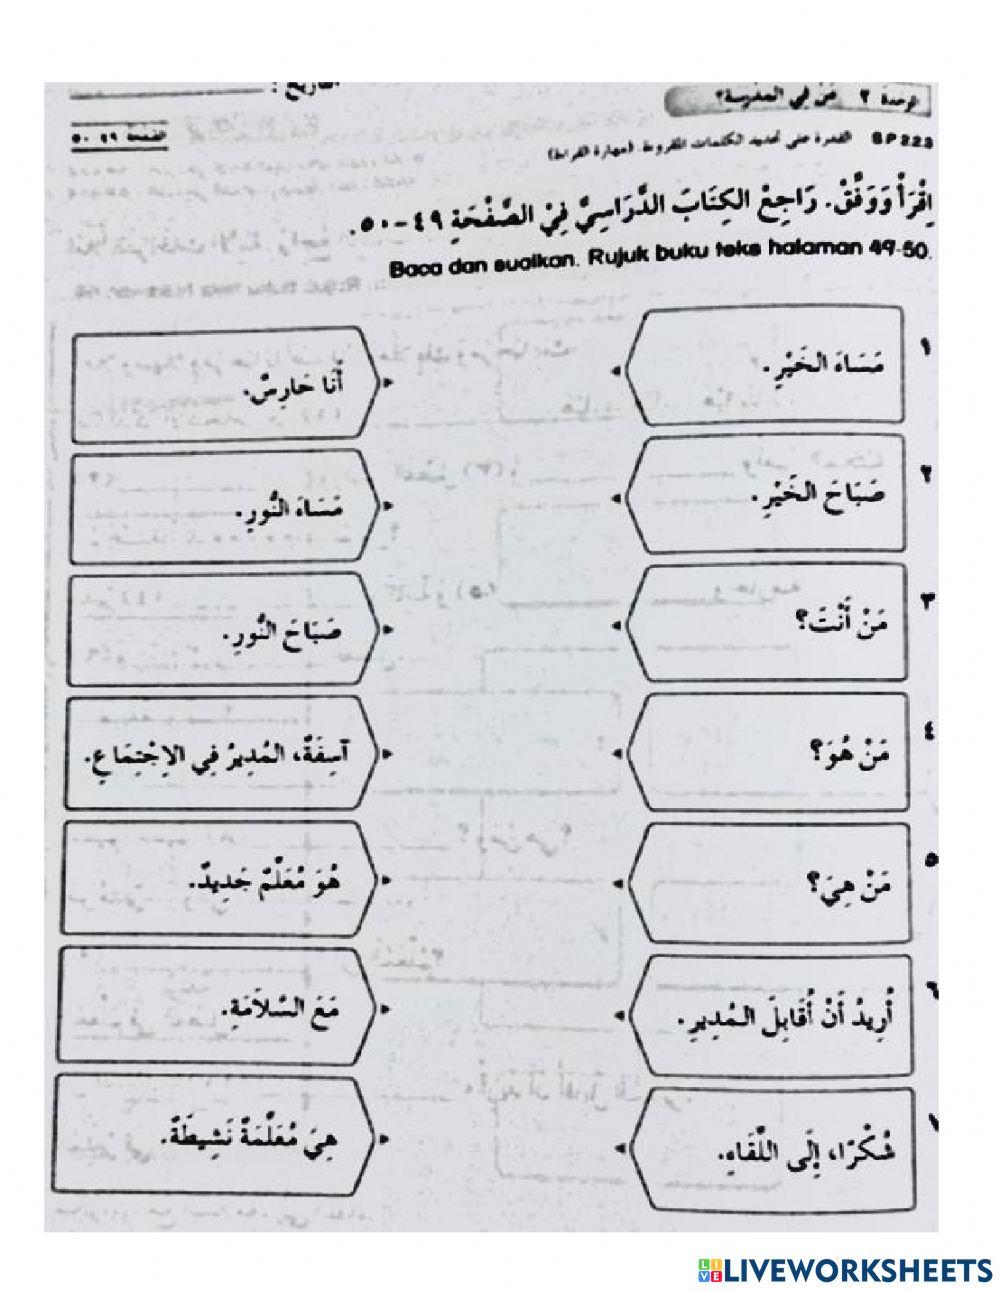 الوحدة ٢ مَنْ فِي المَدْرَسَةِ؟
التاريخ :
SP 223 القدرة على تحديد الكلمات المقروءة. (مهارة القراءة)
الصفحة ٤٩-٥٠
اِقْرَأْ وَوَفِّقْ. رَاجِعْ الكِتَابَ الدَّرَاسِيَّ فِيْ الصَّفْحَةِ ٤٩-٥٠.
Baca dan suaikan. Rujuk buku teks halaman 49-50.
١ مَسَاءَ الخَيْرِ.
أَنَا حَارِسٌ.
٢ صَبَاحَ الخَيْرِ.
مَسَاءَ النُّورِ.
٣ مَنْ أَنْتَ؟
صَبَاحَ النُّورِ.
٤ مَنْ هُوَ؟
آسِفَةٌ، المُدِيرُ فِي الاِجْتِمَاعِ.
٥ مَنْ هِيَ؟
هُوَ مُعَلِّمٌ جَدِيدٌ.
٦ أُرِيدُ أَنْ أُقَابِلَ المُدِيرِ.
مَعَ السَّلَامَةِ.
٧ شُكْرًا، إِلَى اللِّقَاءِ.
هِيَ مُعَلِّمَةٌ نَشِيطَةٌ.
LIVEWORKSHEETS